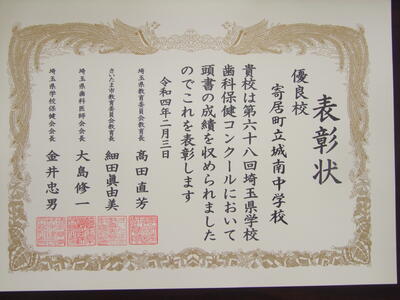 表彰状
優良校
寄居町立城南中学校
貴校は第六十八回埼玉県学校
歯科保健コンクールにおいて
頭書の成績を収められました
のでこれを表彰します
令和四年二月三日
埼玉県教育委員会教育長 髙田直芳
さいたま市教育委員会教育長 細田眞由美
埼玉県歯科医師会会長 大島修一
埼玉県学校保健会会長 金井忠男